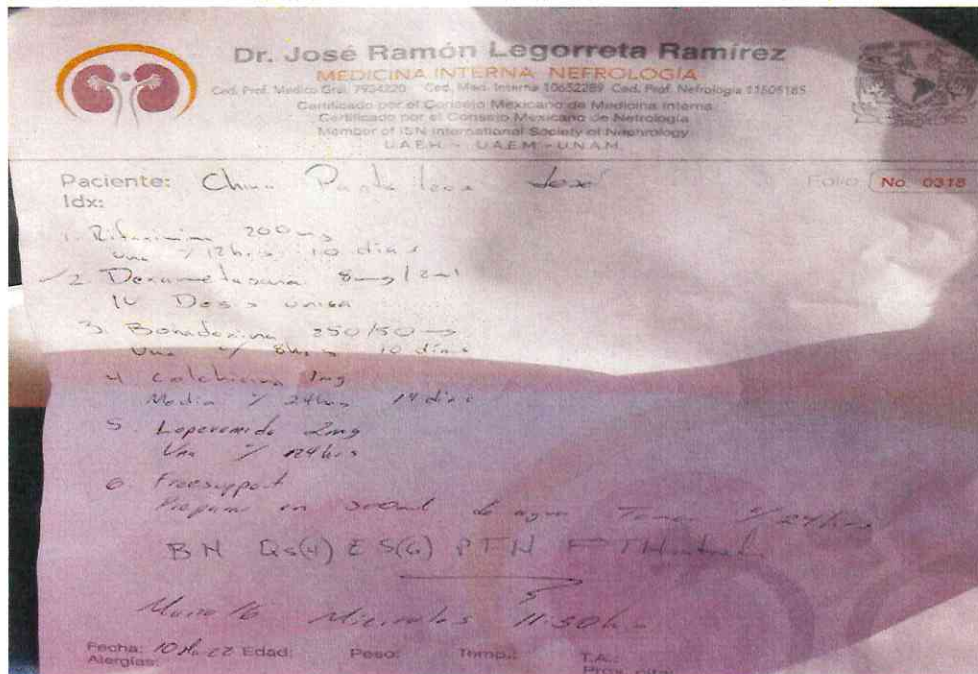 Dr. José Ramón Legorreta Ramírez
MEDICINA INTERNA NEFROLOGÍA
Ced. Prof. Medico Gral. 7934220 Ced. Med. Interna 10652289 Ced. Prof. Nefrología 11606185
Certificado por el Consejo Mexicano de Medicina Interna
Certificado por el Consejo Mexicano de Nefrología
Member of ISN International Society of Nephrology
U.A.E.H. - U.A.E.M. - U.N.A.M.
Paciente: José Folio No. 0318
Idx:
1. Rifaximina 200mg
Una c/12hrs 10 dias
2. Dexametasona 8mg/2ml
IV Dosis unica
3. Bonadoxina
Una c/ 8hrs 10 dias
4. Colchicina 1mg
Media c/ 24hrs 14 dias
5. Loperamida 2mg
Una c/
6. Freesupport
Preparar en 300ml de agua Tomar c/24hrs
BH Qs(4) ES(6)
11:30hrs
Fecha: 10 Edad: Peso: Temp.: T.A.:
Alergias: